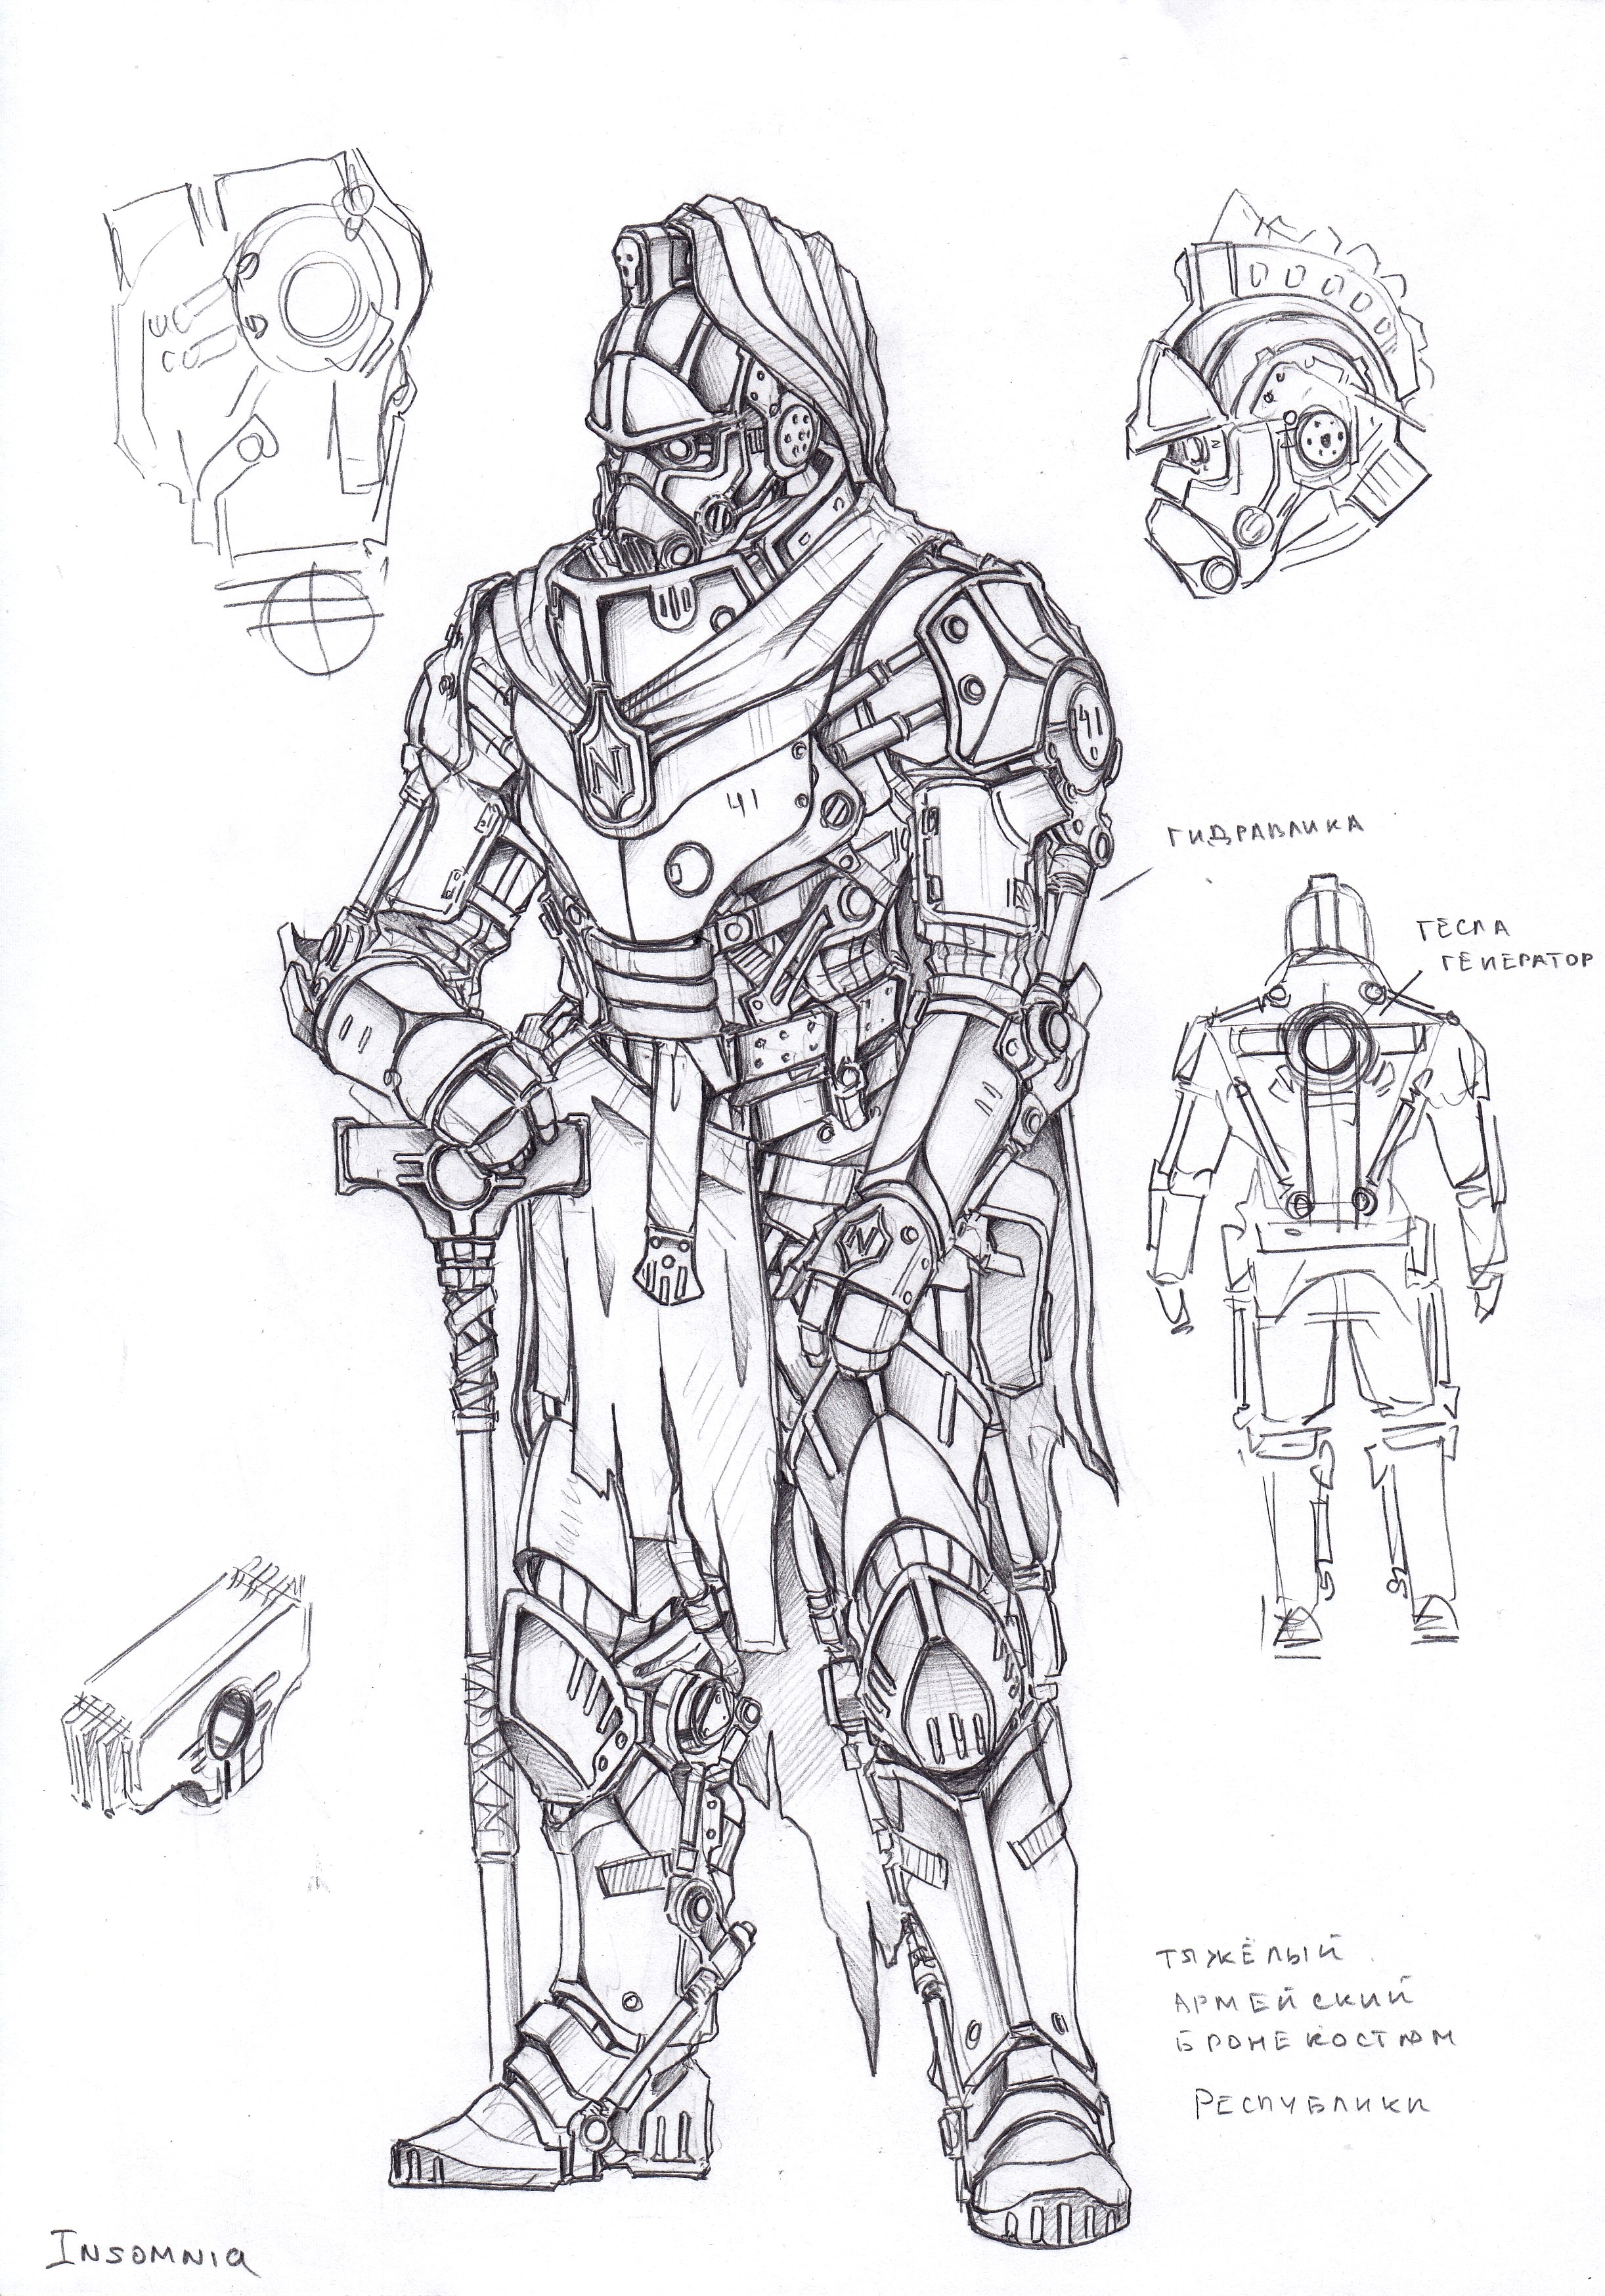 N
41
41
N
ГИДРАВЛИКА
ТЕСЛА
ГЕНЕРАТОР
ТЯЖЁЛЫЙ
АРМЕЙСКИЙ
БРОНЕКОСТЮМ
РЕСПУБЛИКИ
INSOMNIA